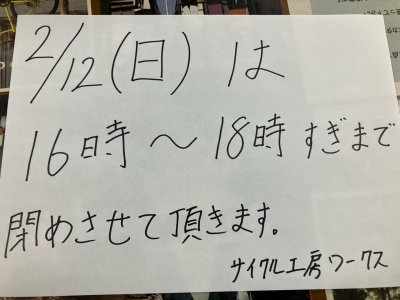 2/12(日)は
16時～18時すぎまで
閉めさせて頂きます。
サイクル工房ワークス